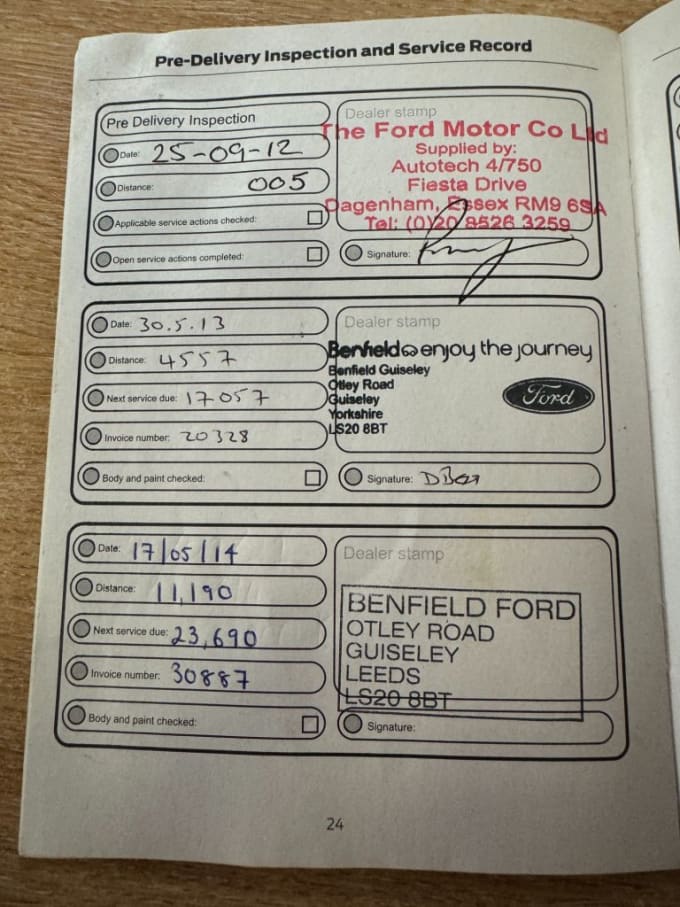 Pre-Delivery Inspection and Service Record
Pre Delivery Inspection
Date: 25-09-12
Distance: 005
Applicable service actions checked:
Open service actions completed:
Dealer stamp
The Ford Motor Co Ltd
Supplied by:
Autotech 4/750
Fiesta Drive
Dagenham, Essex RM9 6SA
Tel: (0)20 8526 3259
Signature:
Date: 30.5.13
Distance: 4557
Next service due: 17057
Invoice number: 20328
Body and paint checked:
Dealer stamp
Benfield enjoy the journey
Benfield Guiseley
Otley Road
Guiseley
Yorkshire
LS20 8BT
Ford
Signature:
Date: 17/05/14
Distance: 11,190
Next service due: 23,690
Invoice number: 30887
Body and paint checked:
Dealer stamp
BENFIELD FORD
OTLEY ROAD
GUISELEY
LEEDS
LS20 8BT
Signature:
24